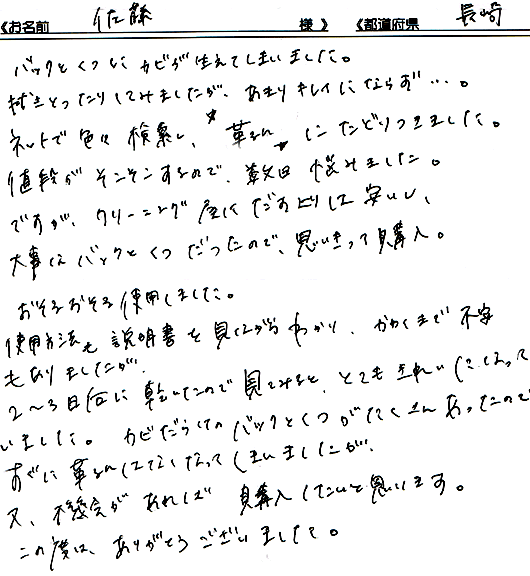 《お名前 佐藤 様 》 《都道府県 長崎
バックとくつにカビが生えてしまいました。
拭きとったりしてみましたが、あまりキレイにならず…。
ネットで色々検索し、"革るん"にたどりつきました。
値段がそこそこするので、数日悩みました。
ですが、クリーニング屋にだすよりは安いし、
大事なバックとくつだったので、思いきって購入。
おそるおそる使用しました。
使用方法も説明書を見ながらわかり、かわくまで不安
もありましたが、
2〜3日後に乾いたので見てみると、とてもきれいになって
いました。カビだらけのバックとくつがたくさんあったので
すぐに革るんはなくなってしまいましたが、
又、機会があれば購入したいと思います。
この度は、ありがとうございました。